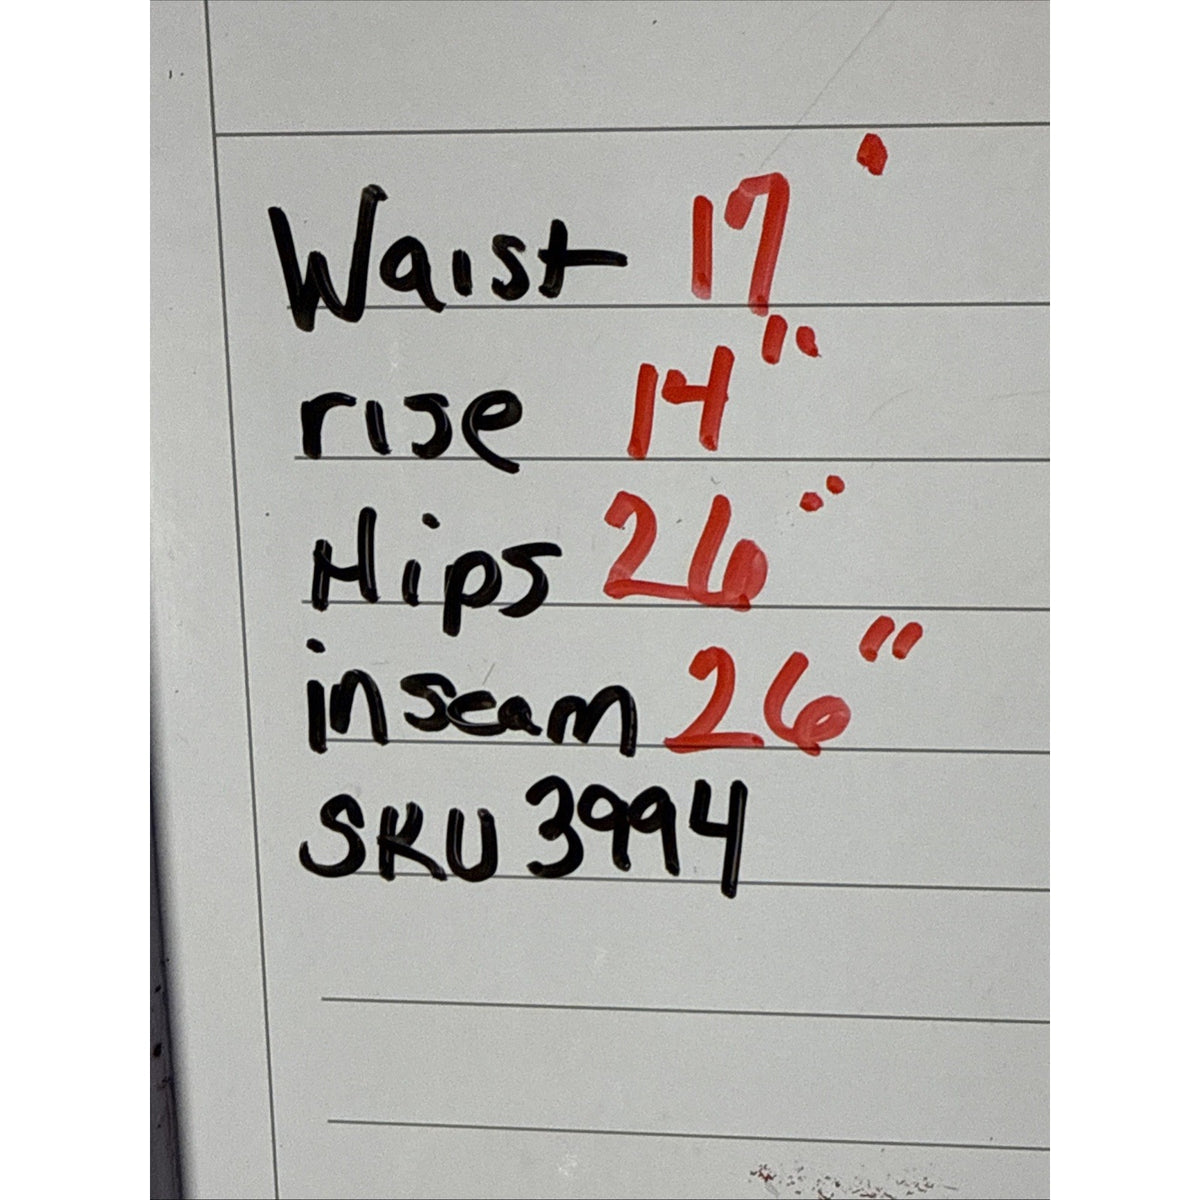 Waist 17'
rise 14"
Hips 26"
inseam 26"
SKU 3994